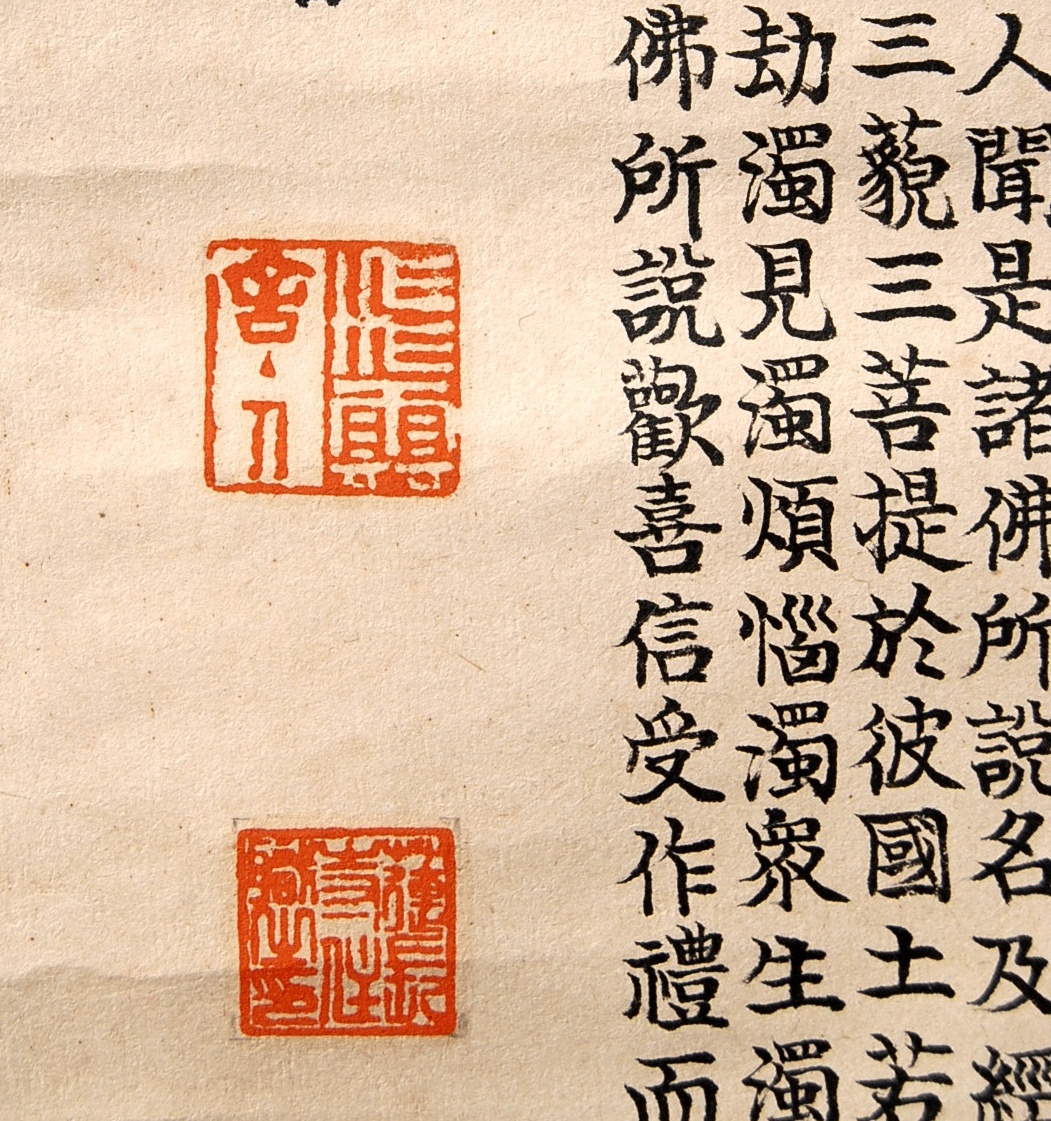 人聞是諸佛所說名及經
三藐三菩提於彼國土若
劫濁見濁煩惱濁眾生濁
佛所說歡喜信受作禮而